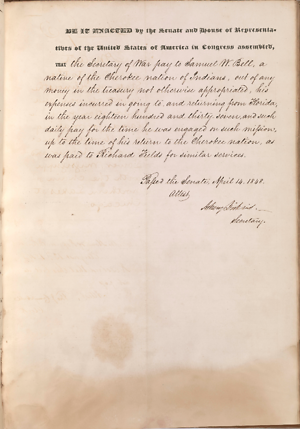 BE IT ENACTED by the Senate and House of Representa-
tives of the United States of America in Congress assembled,
THAT the Secretary of War pay to Samuel W. Bell, a
native of the Cherokee nation of Indians, out of any
money in the treasury not otherwise appropriated, his
expenses incurred in going to and returning from Florida,
in the year eighteen hundred and thirty seven, and such
daily pay for the time he was engaged on such mission,
up to the time of his return to the Cherokee nation, as
was paid to Richard Fields for similar services.
Passed the Senate, April 14, 1848.
Attest,
Asbury Dickins
Secretary.